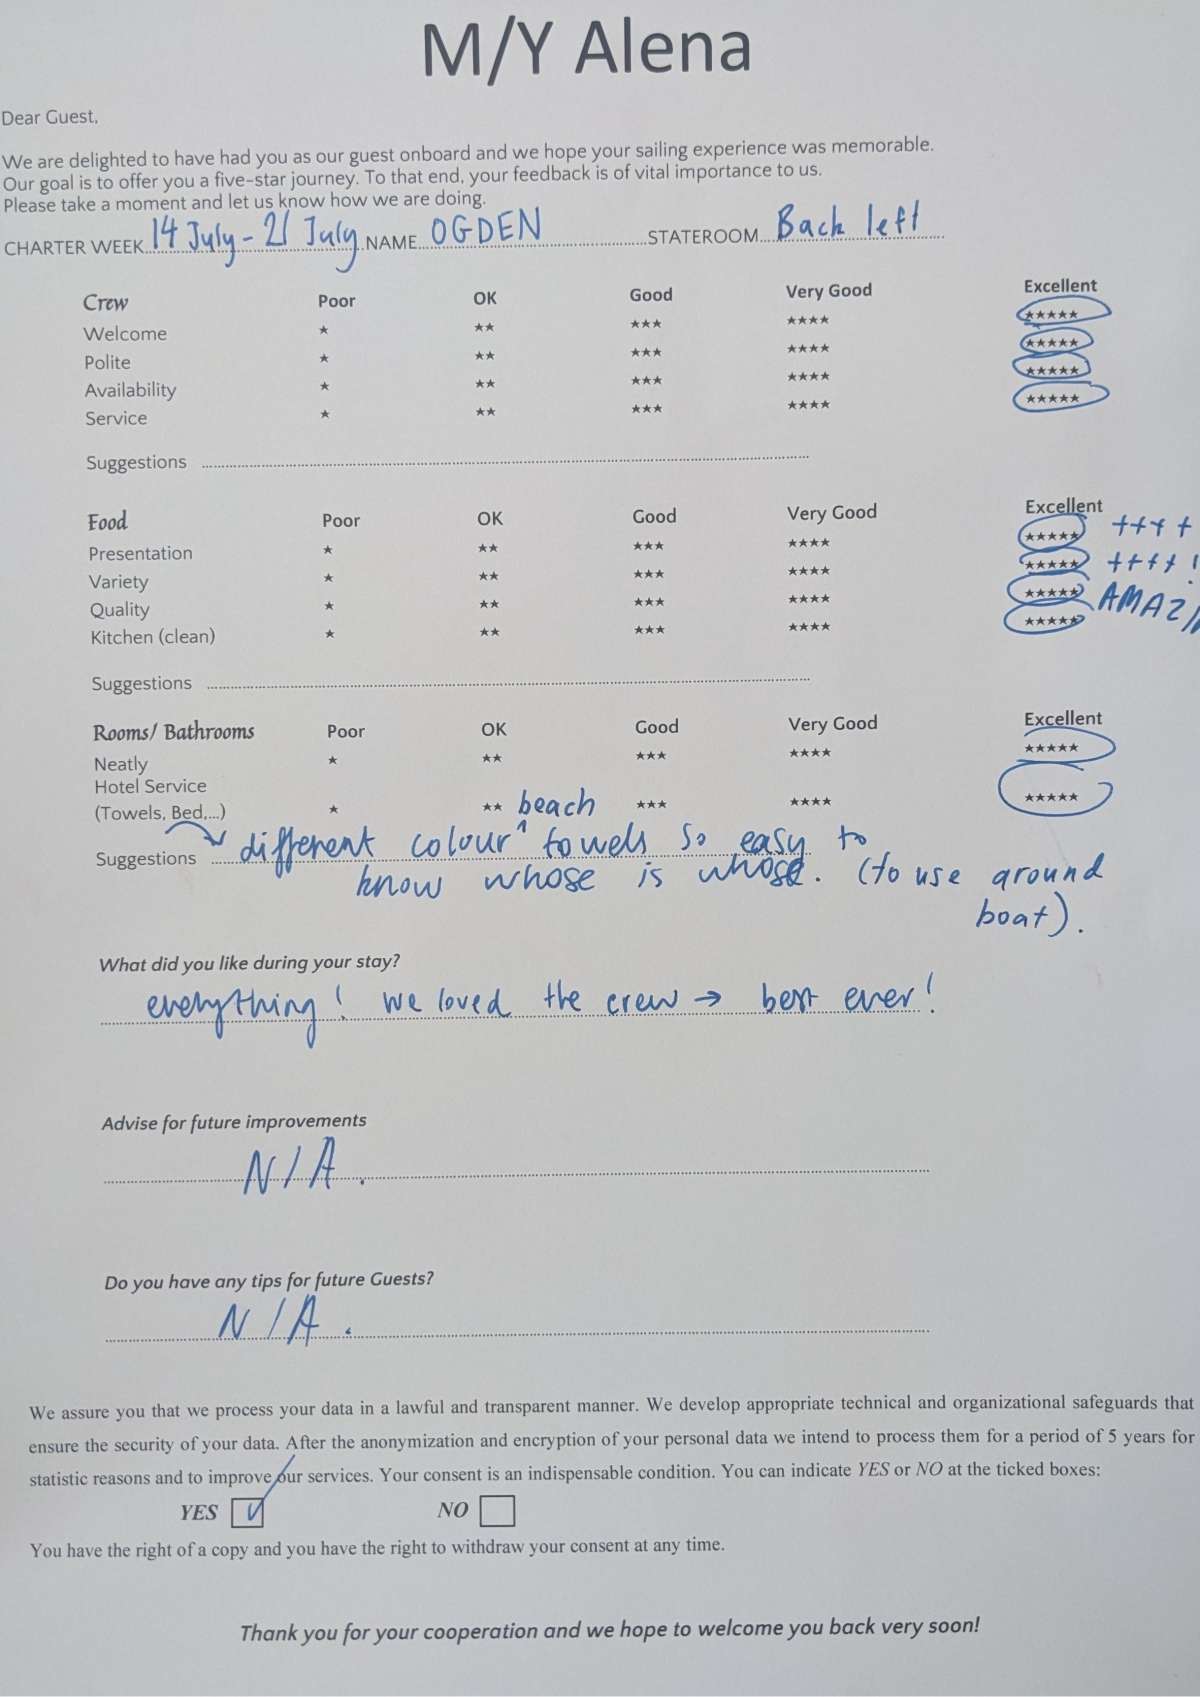 M/Y Alena
Dear Guest,
We are delighted to have had you as our guest onboard and we hope your sailing experience was memorable.
Our goal is to offer you a five-star journey. To that end, your feedback is of vital importance to us.
Please take a moment and let us know how we are doing.
CHARTER WEEK 14 July - 21 July NAME OGDEN STATEROOM Back left
Crew Poor OK Good Very Good Excellent
Welcome ★ ★★ ★★★ ★★★★ ★★★★★
Polite ★ ★★ ★★★ ★★★★ ★★★★★
Availability ★ ★★ ★★★ ★★★★ ★★★★★
Service ★ ★★ ★★★ ★★★★ ★★★★★
Suggestions
Food Poor OK Good Very Good Excellent
Presentation ★ ★★ ★★★ ★★★★ ★★★★★ ++++
Variety ★ ★★ ★★★ ★★★★ ★★★★★ ++++!
Quality ★ ★★ ★★★ ★★★★ ★★★★★
Kitchen (clean) ★ ★★ ★★★ ★★★★ ★★★★★
Suggestions
Rooms/ Bathrooms Poor OK Good Very Good Excellent
Neatly ★ ★★ ★★★ ★★★★ ★★★★★
Hotel Service
(Towels, Bed,...) ★ ★★ ★★★ ★★★★ ★★★★★
Suggestions different colour beach towels so easy to
know whose is whose. (to use around
boat).
What did you like during your stay?
everything! we loved the crew → best ever!
Advise for future improvements
N/A.
Do you have any tips for future Guests?
N/A.
We assure you that we process your data in a lawful and transparent manner. We develop appropriate technical and organizational safeguards that
ensure the security of your data. After the anonymization and encryption of your personal data we intend to process them for a period of 5 years for
statistic reasons and to improve our services. Your consent is an indispensable condition. You can indicate YES or NO at the ticked boxes:
YES ☑ NO ☐
You have the right of a copy and you have the right to withdraw your consent at any time.
Thank you for your cooperation and we hope to welcome you back very soon!